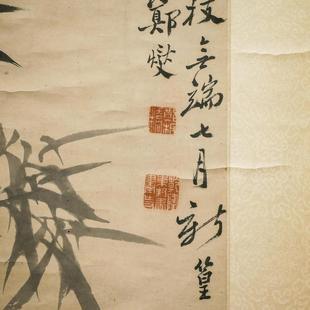 枝無端七月新篁
鄭燮